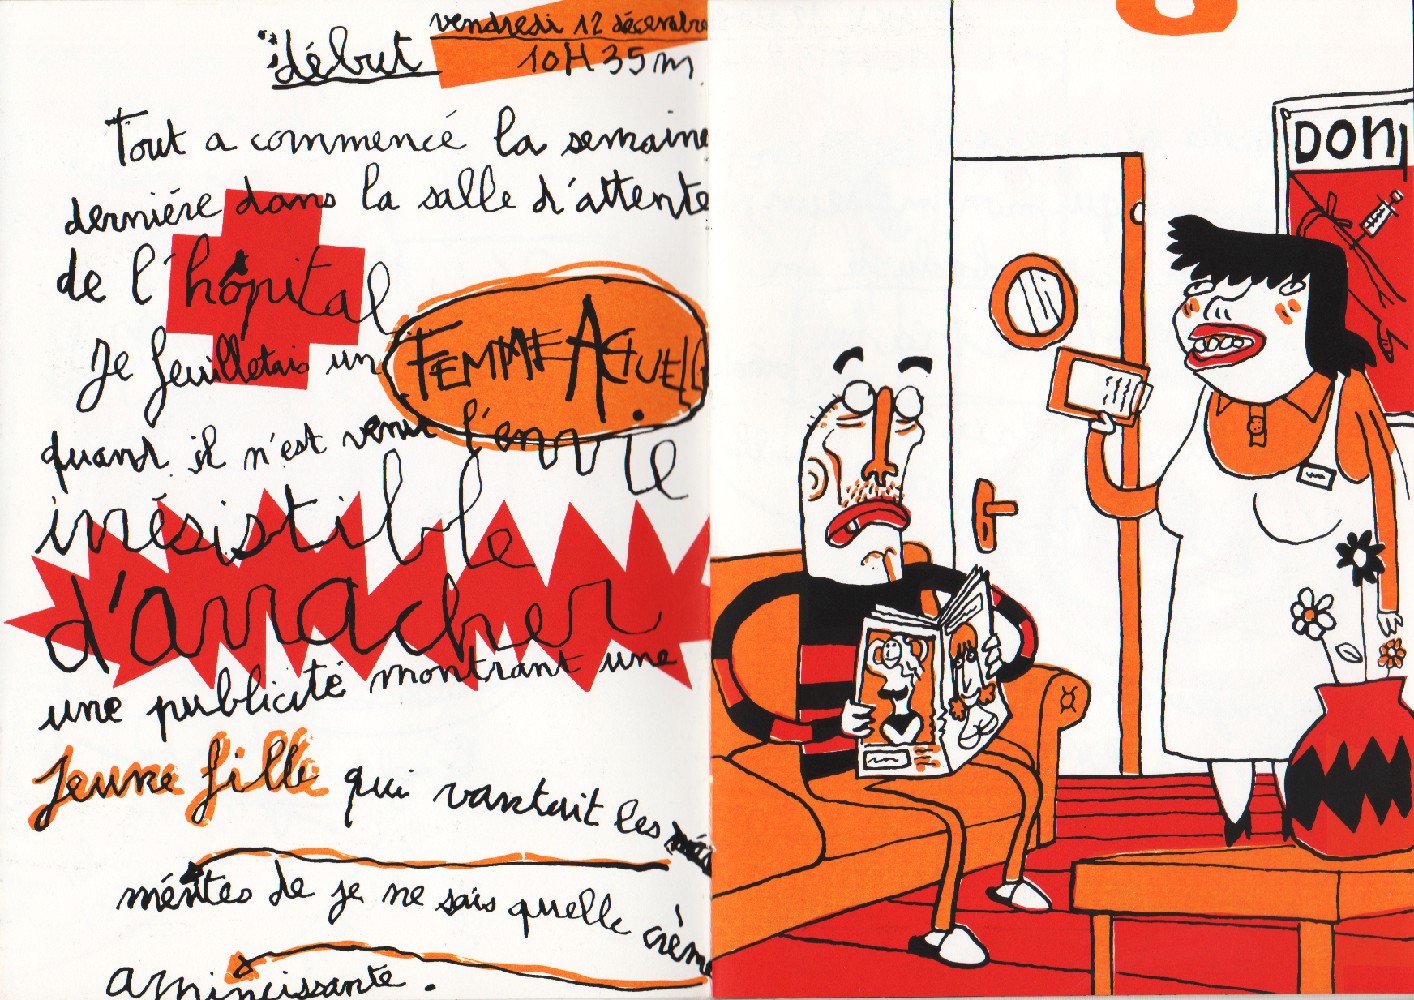 début
vendredi 12 décembre
10H35m
Tout a commencé la semaine
derniére dans la salle d'attente
de l'hôpital
Je feuilletais un FEMME ACTUELLE
quand il n'est venu l'envie
inésistible
d'arracher
une publicité montrant une
jeune fille qui vantait les
mérites de je ne sais quelle crème
amincissante.
DON